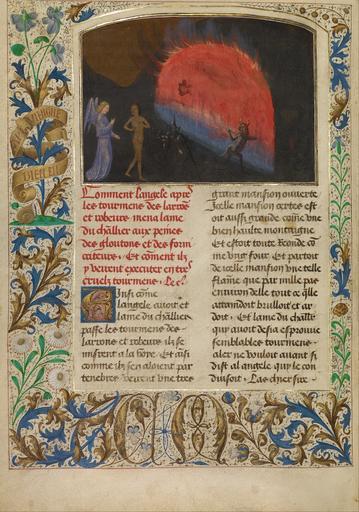 Comment langele apres
les tourmens des larrons
et robeurs mena lame
du chłlier aux peines
des gloutons et des forni
cateurs. Et comment ilz
y virent executer
cruelz tourmens.
Ainsi côme
langele auoit et
lame du chłlier
passe les tourmens des
larrons et robeurs ilz se
misrent a la voye. Et ainsi
comme ilz sen aloient par
tenebres virent vne tres
grant mansion ouuerte
Icelle mansion certes est
oit aussi grande côme vne
bien haulte montaigne
Et estoit toute Ronde cô
me vng four. Et partoit
de icelle mansion vne telle
flame que par mille pas
enuiron delle tout ce qlle
attaindoit brulloit et ar
doit. Et lame du chłlr
qui auoit desia esprouue
semblables tourmens
aler ne vouloit auant si
dist al angele qui le con
duisoit.